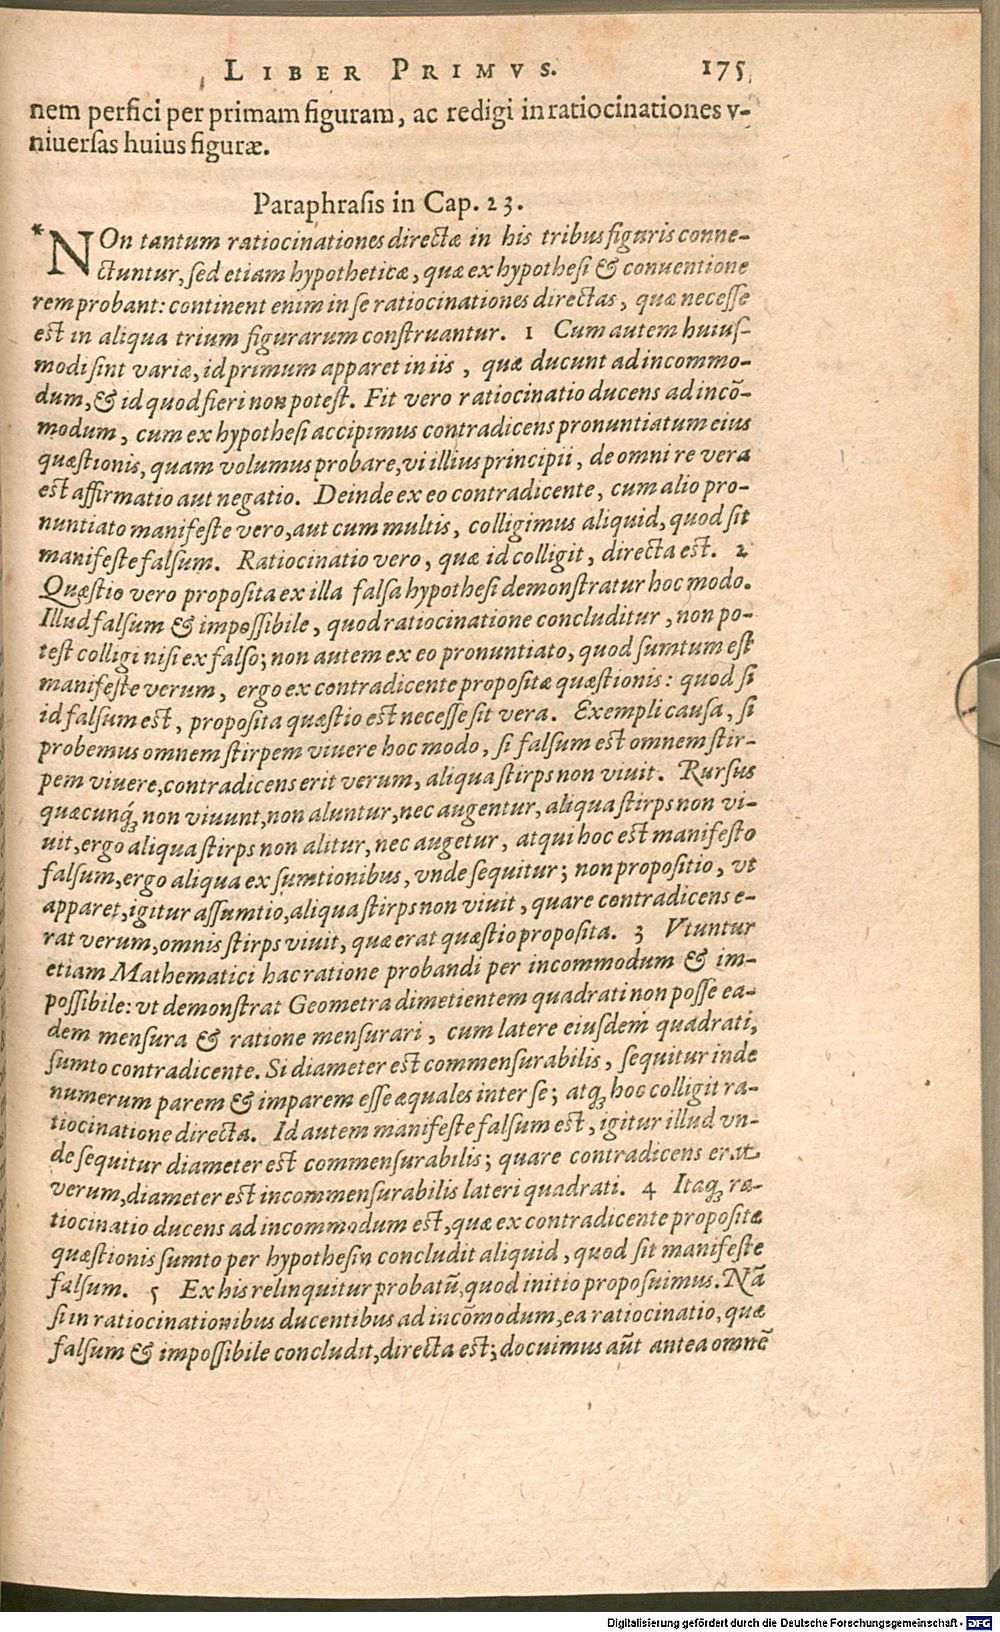 LIBER PRIMVS. 175
nem perfici per primam figuram, ac redigi in ratiocinationes v-
niuerſas huius figuræ.
Paraphraſis in Cap. 23.
*NOn tantum ratiocinationes directæ in his tribus figuris conne-
ctuntur, ſed etiam hypotheticæ, quæ ex hypotheſi & conuentione
rem probant: continent enim in ſe ratiocinationes directas, quæ neceſſe
est in aliqua trium figurarum conſtruantur. 1 Cum autem huiuſ-
modi ſint variæ, id primum apparet in iis, quæ ducunt ad incommo-
dum, & id quod fieri non poteſt. Fit vero ratiocinatio ducens ad incō-
modum, cum ex hypotheſi accipimus contradicens pronuntiatum eius
quæſtionis, quam volumus probare, vi illius principii, de omni re vera
est affirmatio aut negatio. Deinde ex eo contradicente, cum alio pro-
nuntiato manifeſte vero, aut cum multis, colligimus aliquid, quod ſit
manifeſte falſum. Ratiocinatio vero, quæ id colligit, directa est. 2
Quæſtio vero propoſita ex illa falſa hypotheſi demonſtratur hoc modo.
Illud falſum & impoſſibile, quod ratiocinatione concluditur, non po-
test colligi niſi ex falſo; non autem ex eo pronuntiato, quod ſumtum est
manifeſte verum, ergo ex contradicente propoſitæ quæſtionis: quod ſi
id falſum est, propoſita quæſtio est neceſſe ſit vera. Exempli cauſa, ſi
probemus omnem ſtirpem viuere hoc modo, ſi falſum est omnem ſtir-
pem viuere, contradicens erit verum, aliqua ſtirps non viuit. Rurſus
quæcunq́ꝫ non viuunt, non aluntur, nec augentur, aliqua ſtirps non vi-
uit, ergo aliqua ſtirps non alitur, nec augetur, atqui hoc est manifeſto
falſum, ergo aliqua ex ſumtionibus, vnde ſequitur; non propoſitio, vt
apparet, igitur aſſumtio, aliqua ſtirps non viuit, quare contradicens e-
rat verum, omnis ſtirps viuit, quæ erat quæſtio propoſita. 3 Vtuntur
etiam Mathematici hac ratione probandi per incommodum & im-
poſſibile: vt demonſtrat Geometra dimetientem quadrati non poſſe ea-
dem menſura & ratione menſurari, cum latere eiuſdem quadrati,
ſumto contradicente. Si diameter est commenſurabilis, ſequitur inde
numerum parem & imparem eſſe æquales inter ſe; atqꝫ hoc colligit ra-
tiocinatione directa. Id autem manifeſte falſum est, igitur illud vn-
de ſequitur diameter est commenſurabilis; quare contradicens erat
verum, diameter est incommenſurabilis lateri quadrati. 4 Itaqꝫ ra-
tiocinatio ducens ad incommodum est, quæ ex contradicente propoſitæ
quæſtionis ſumto per hypotheſin concludit aliquid, quod ſit manifeſte
falſum. 5 Ex his relinquitur probatū, quod initio propoſuimus. Nā
ſi in ratiocinationibus ducentibus ad incōmodum, ea ratiocinatio, quæ
falſum & impoſſibile concludit, directa est; docuimus aūt antea omnē
Digitalisierung gefördert durch die Deutsche Forschungsgemeinschaft - DFG